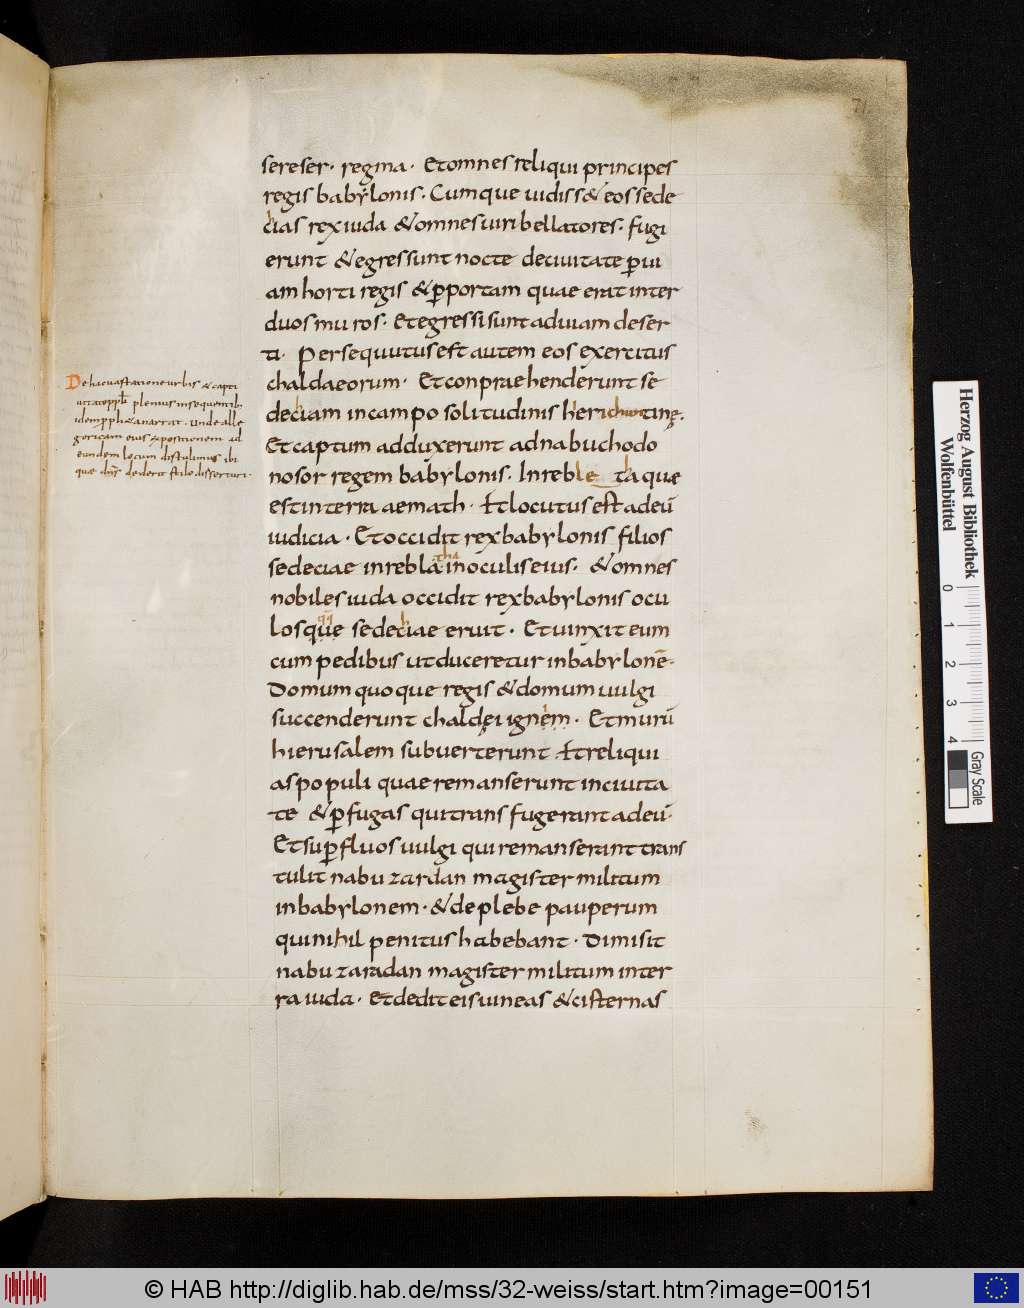 71
sereser· regma· Et omnes reliqui principes
regis babylonis· Cumque uidiss& eos sede
cias rex iuda & omnes uiri bellatores· fugi
erunt & egressunt nocte deciuitate ꝑ ui
am horti regis & ꝑ portam quae erat inter
duos muros· Et egressi sunt ad uiam deser
ti· Persequutus est autem eos exercitus
chaldaeorum· Et conpraehenderunt se
dechiam in campo solitudinis herichontinę·
Et captum adduxerunt ad nabuchodo
nosor regem babylonis· In reble tha que
est in terra aemath· Et locutus est ad eū
iudicia· Et occidit rex babylonis filios
sedeciae in reblatha in oculis eius· & omnes
nobiles iuda occidit rex babylonis ocu
losque sedechiae eruit· Et uinxit eum
cum pedibus ut duceretur in babylonē·
Domum quoque regis & domum uulgi
succenderunt chaldęi ignem· Et murū
hierusalem subuerterunt· Et reliqui
as populi quae remanserunt in ciuita
te & ꝑfugas qui transfugerant ad eū·
Et suꝑfluos uulgi qui remanserant trans
tulit nabuzardan magister militum
in babylonem· & de plebe pauperum
qui nihil penitus habebant· Dimisit
nabuzaradan magister militum in ter
ra iuda· Et dedit eis uineas & cisternas
De hac uastatione urbis & capti
uitate pplī plenius in sequentib;
idem ppha & anarrat· unde alle
goricam eius expositionem ad
eundem locum distulimus ibi
que dn̄s dederit stilo disserturi·
Herzog August Bibliothek
Wolfenbüttel
0 1 2 3 4
Gray Scale
© HAB http://diglib.hab.de/mss/32-weiss/start.htm?image=00151